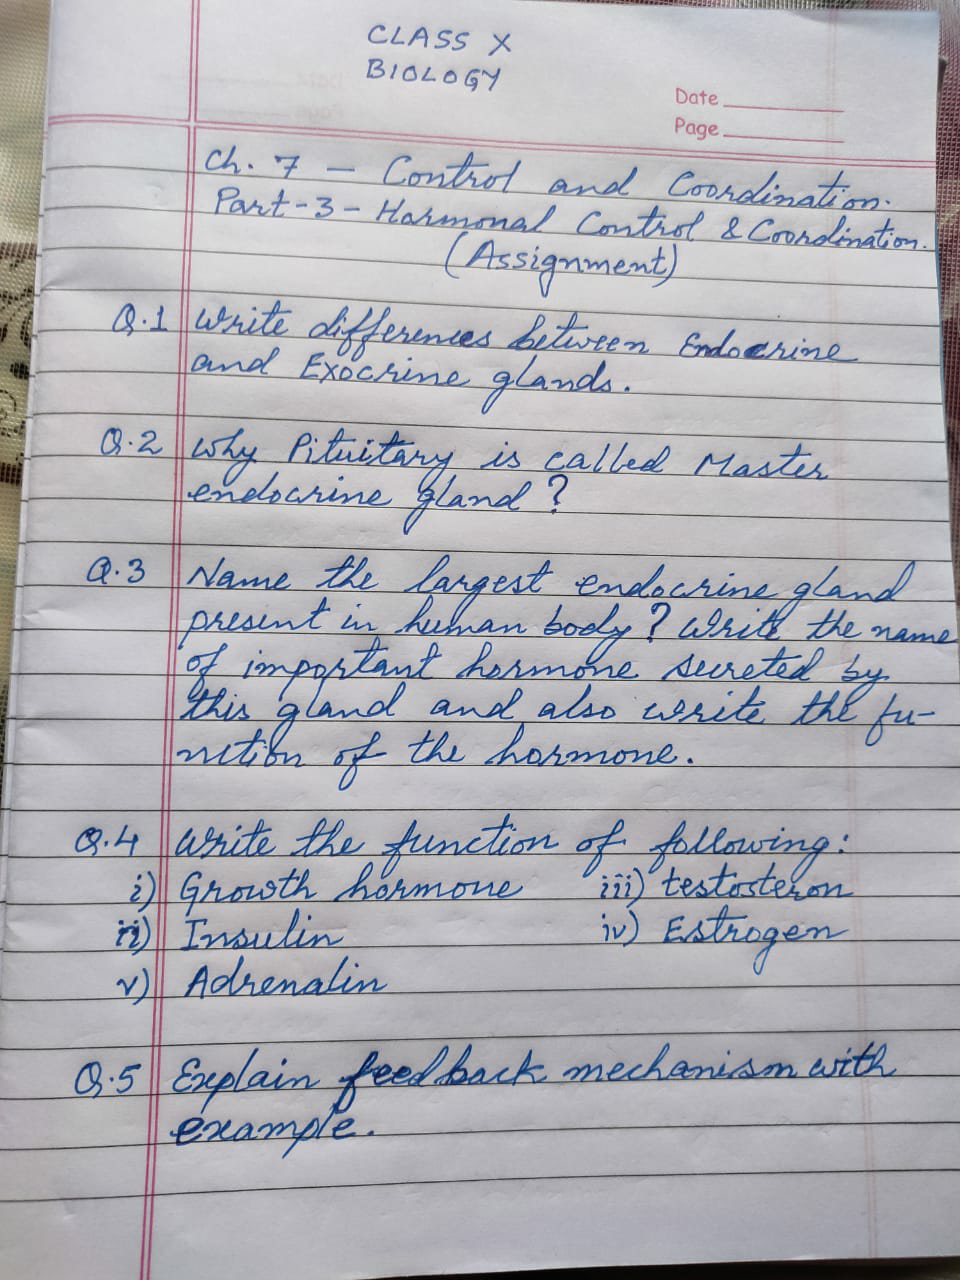 CLASS X
BIOLOGY
Date
Page
Ch. 7 - Control and Coordination.
Part-3 - Harmonal Control & Coordination.
(Assignment)
Q.1 Write differences between Endocrine
and Exocrine glands.
Q.2 Why Pituitary is called Master
endocrine gland?
Q.3 Name the largest endocrine gland
present in human body? Write the name
of important hormone secreted by
this gland and also write the fu-
nction of the hormone.
Q.4 Write the function of following:
i) Growth hormone iii) testosteron
ii) Insulin iv) Estrogen
v) Adrenalin
Q.5 Explain feedback mechanism with
example.